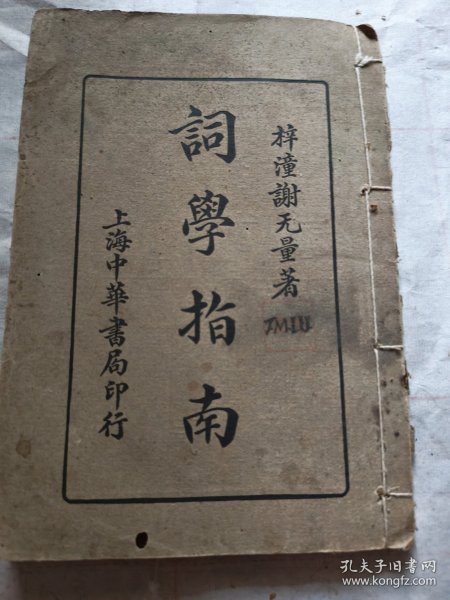 梓潼謝无量著
詞學指南
上海中華書局印行
孔夫子旧书网
www.kongfz.com